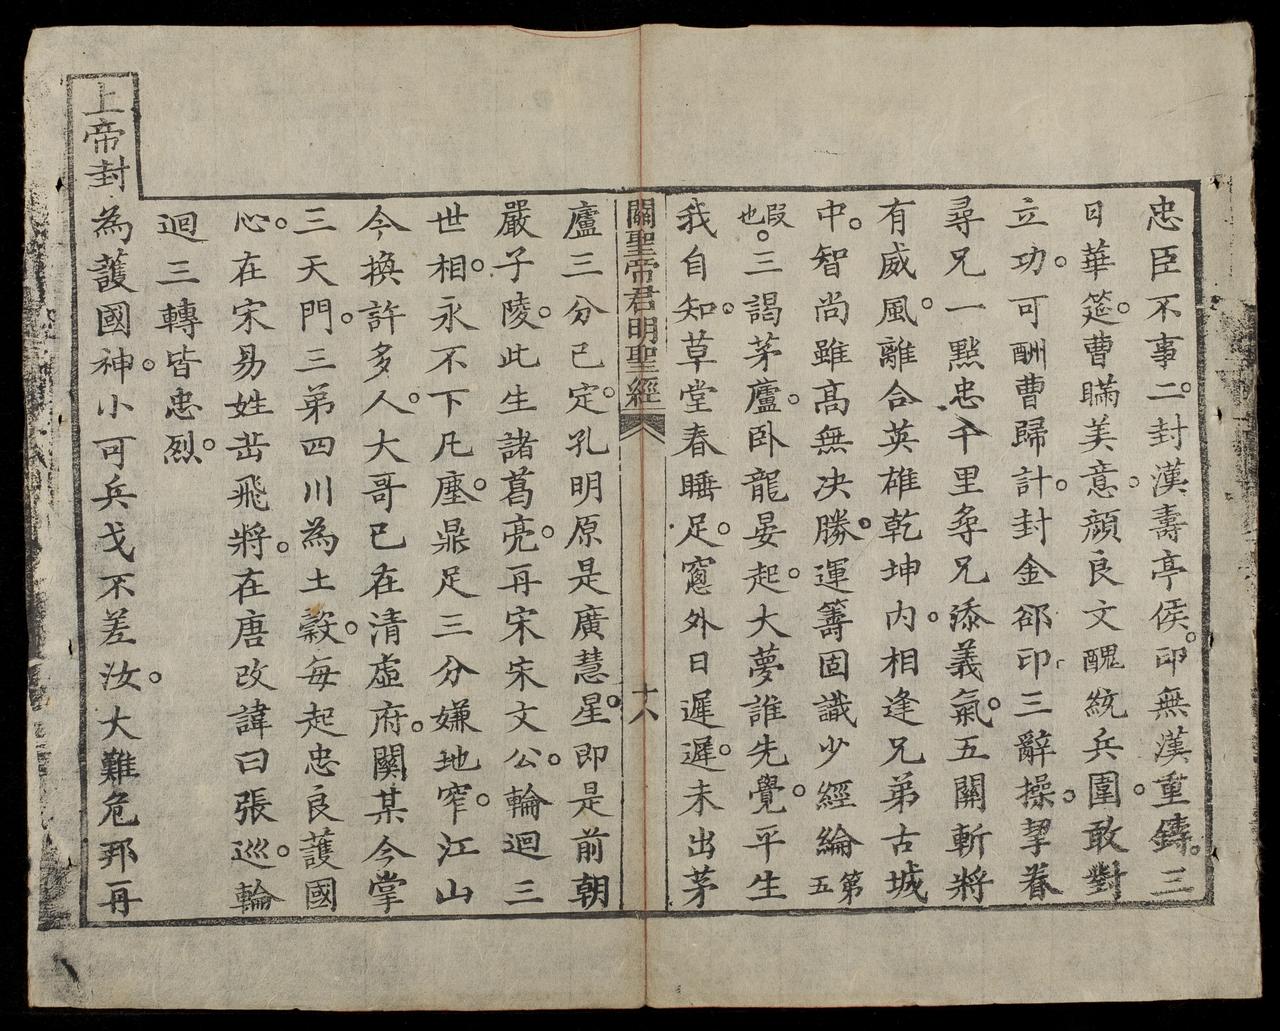 忠臣不事二。封漢壽亭侯。印無漢重鑄。三
日華筵。曹瞞美意。顔良文醜統兵圍。敢對
立功。可酬曹歸計。封金郤印三辭操。挈眷
尋兄一㸃忠千里尋兄添義氣。五關斬將
有威風。離合英雄乾坤内。相逢兄弟古城
中。智尚雖高無决勝。運籌固識少經綸第五
假也。三謁茅廬。卧龍晏起。大夢誰先覺。平生
我自知。草堂春睡足。窻外日遲遲。未出茅
關聖帝君明聖經 十八
廬三分已定。孔明原是廣慧星。即是前朝
嚴子陵。此生諸葛亮。再宋宋文公。輪迴三
世相。永不下凡塵。鼎足三分嫌地窄。江山
今換許多人。大哥已在清虛府。關某今掌
三天門。三弟四川為土穀。每起忠良護國
心。在宋易姓岳飛將。在唐改諱曰張巡。輪
迴三轉皆忠烈。
上帝封為護國神。小可兵戈不差汝。大難危邦再